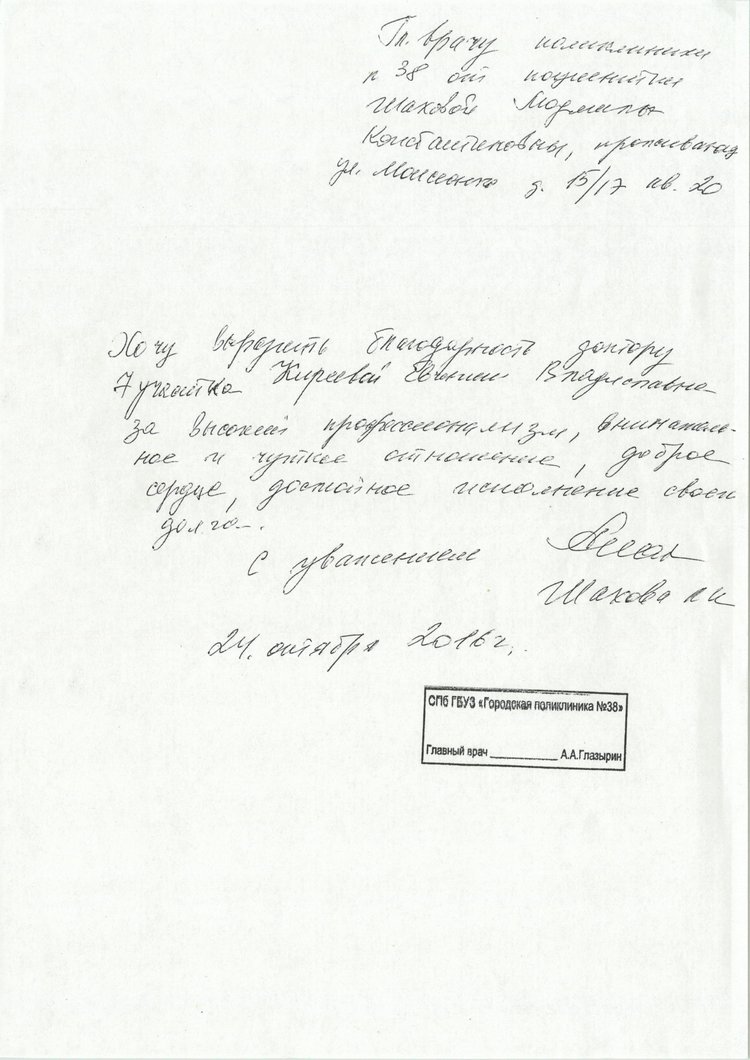 Гл. врачу поликлиники
п 38 от пациентки
Шаховой Людмилы
Константиновны, проживающ
ул. Моисеенко д. 15/17 кв. 20
Хочу выразить благодарность доктору
7 участка Киреевой Евгении Владиславне
за высокий профессионализм, вниматель-
ное и чуткое отношение, доброе
сердце, достойное исполнение своего
долга.
С уважением
Шахова Л К
24. октября 2016 г.
СПб ГБУЗ «Городская поликлиника №38»
Главный врач ____________ А.А.Глазырин